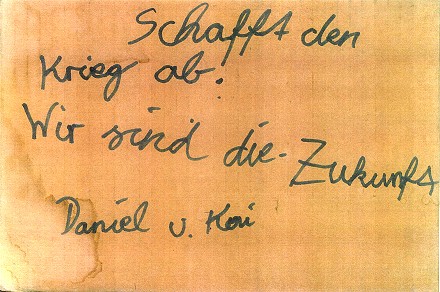 Schafft den
Krieg ab.
Wir sind die Zukunft
Daniel u. Kori